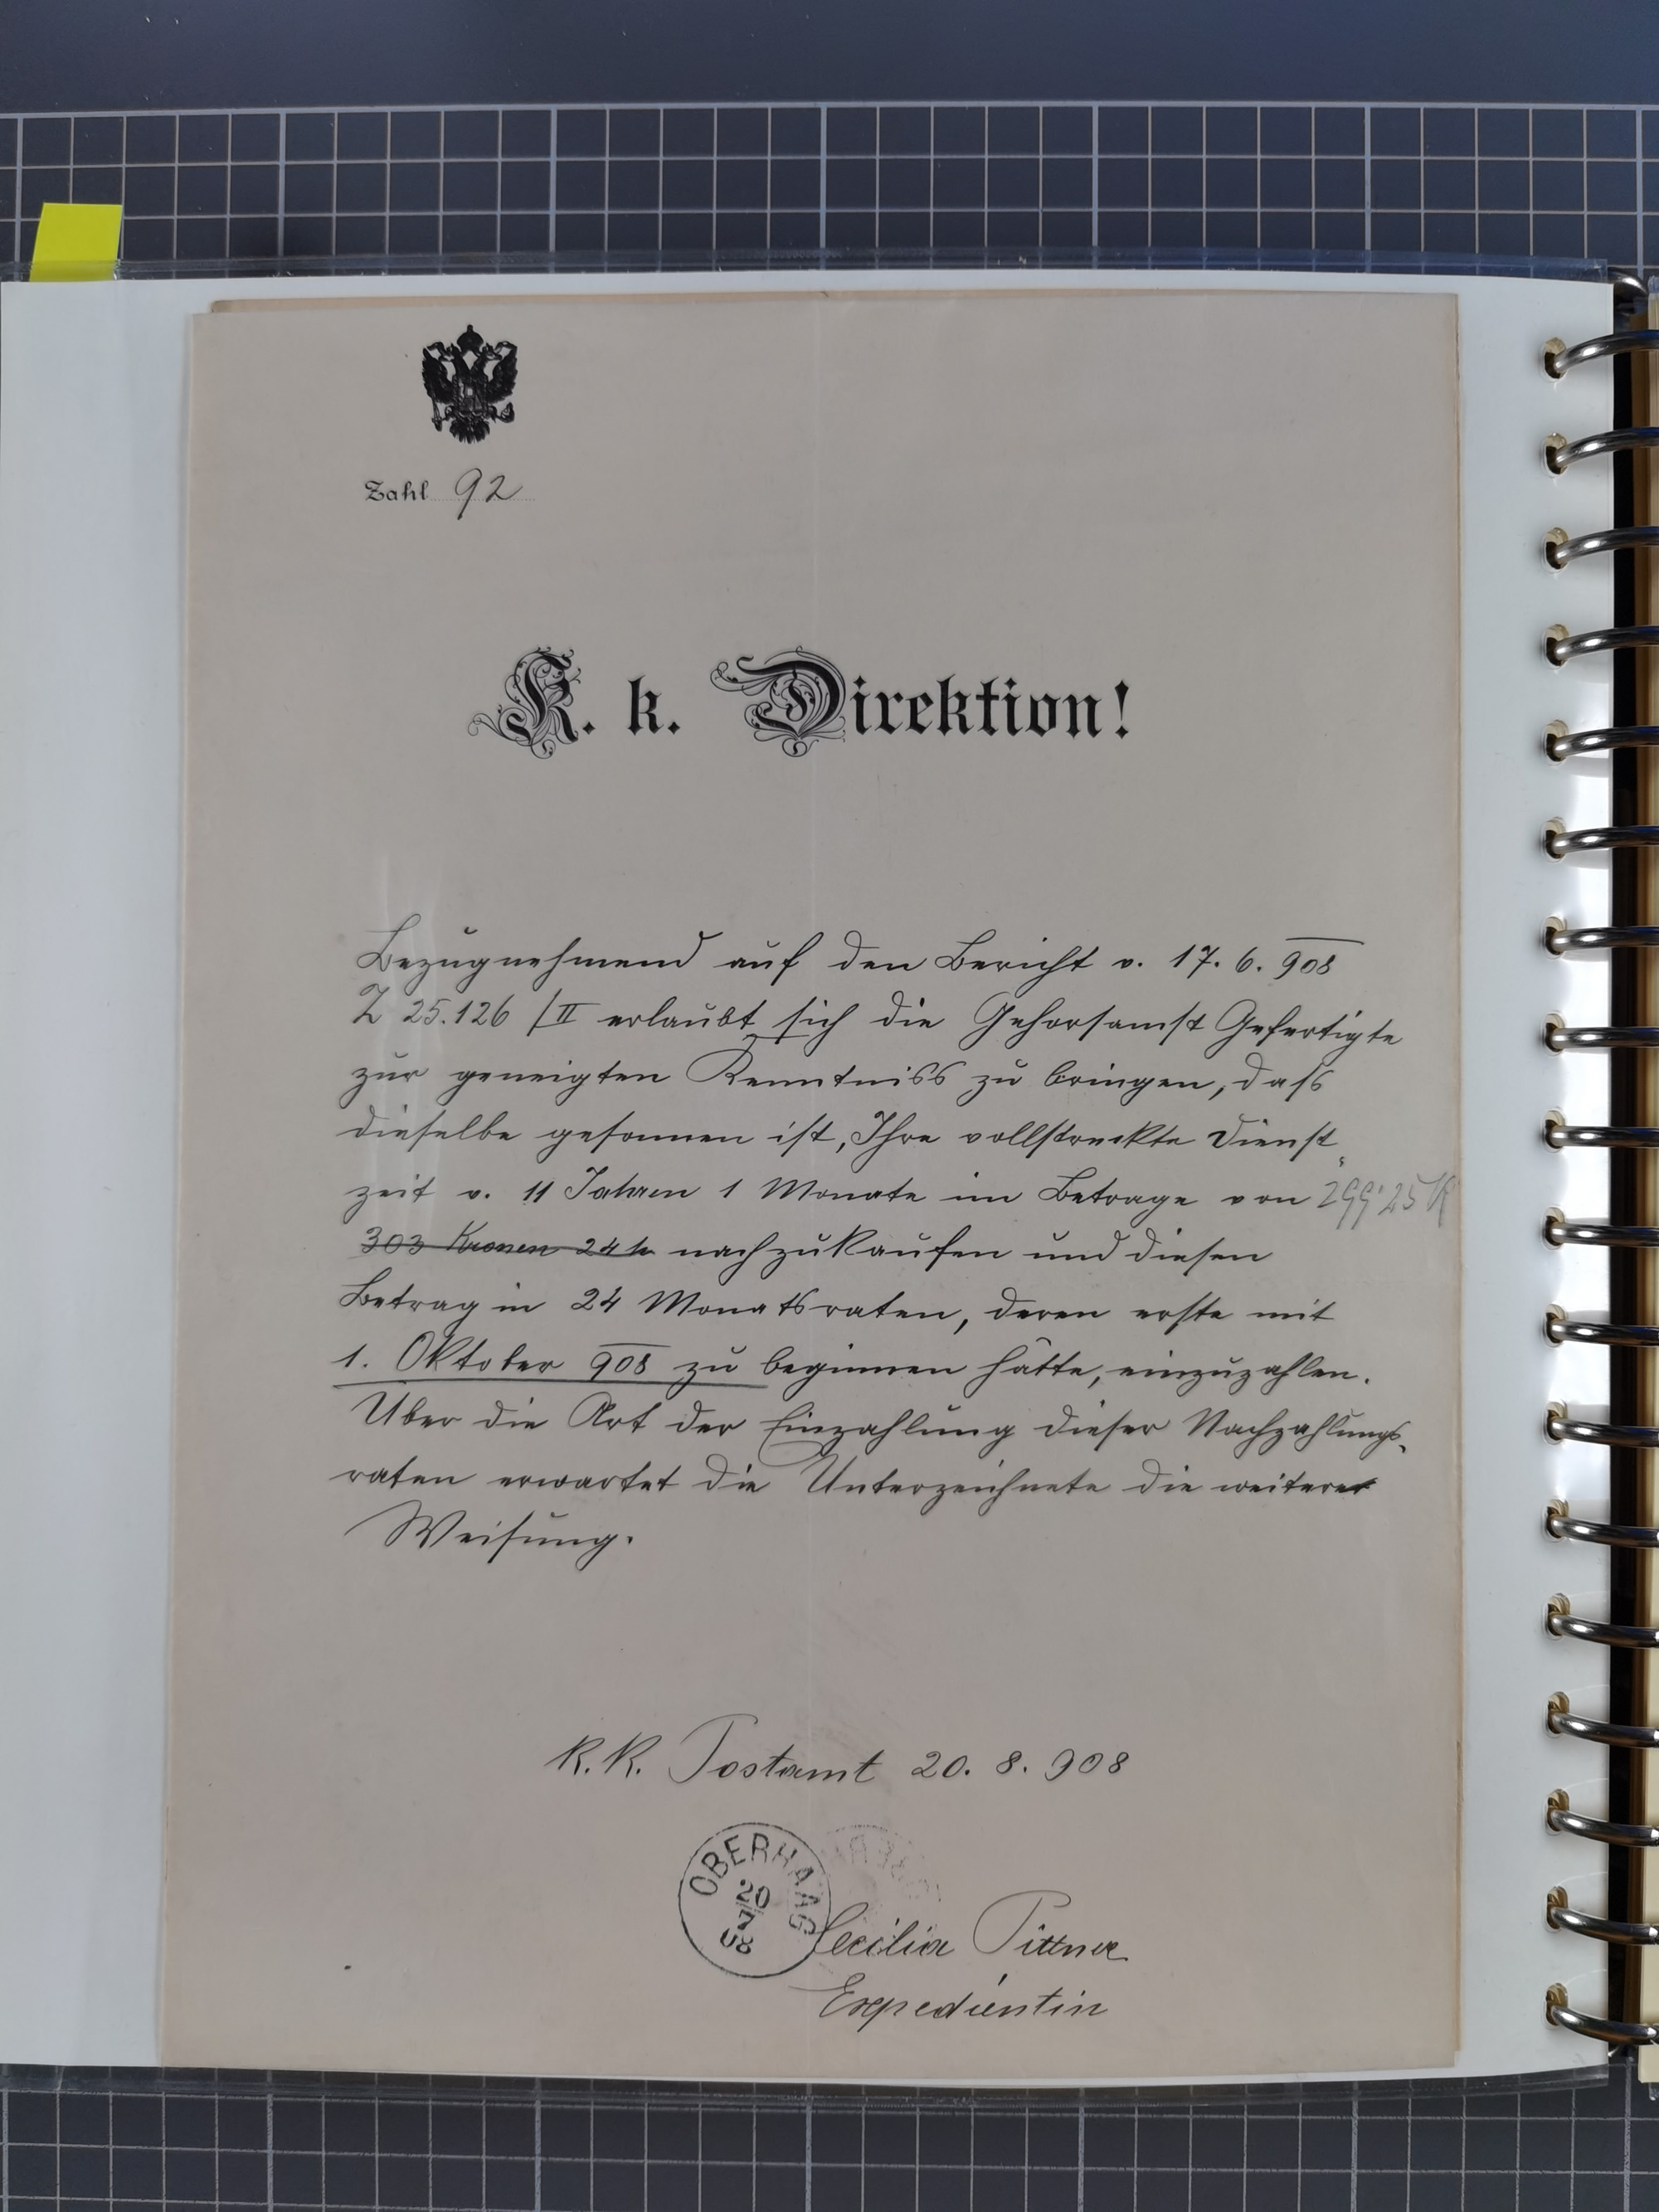 Zahl 92
K. k. Direktion!
Bezugnehmend auf den Bericht v. 17. 6. 908
Z 25.126 / II erlaubt sich die Gehorsamst Gefertigte
zur geneigten Kenntniss zu bringen, dass
dieselbe gesonnen ist, Ihre vollstreckte Dienst„
zeit v. 11 Jahren 1 Monate im Betrage von 299·25 K
303 Kronen 24 h nachzukaufen und diesen
Betrag in 24 Monatsraten, deren erste mit
1. Oktober 908 zu beginnen hätte, einzuzahlen.
Über die Art der Einzahlung dieser Nachzahlungs„
raten erwartet die Unterzeichnete die weitere
Weisung.
K.K. Postamt 20. 8. 908
OBERHAAG
20
7
08
Cecilia Pittner
Expedientin